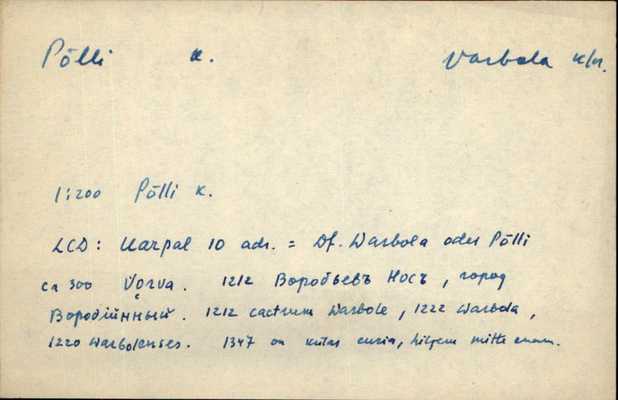 Põlli k. Varbola k/n.
1:200 Põlli k.
LCD: Karpal 10 adr. = Df. Warbola oder Põlli
ca 300 Vorva. 1212 Воробьевъ Носъ, город
Воробійнный. 1212 castrum Warbole, 1222 Warbola,
1220 Warbolenses. 1347 on kutas curia, hiljem mitte enam.